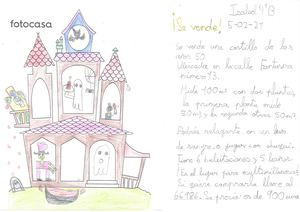 fotocasa
Isabel 4ºB
¡Se vende! 5-02-21
Se vende una castillo de los
años 50
Ubicada en la calle Fantasma
número 13.
Mide 100m² con dos plantas,
la primera planta mide
50m² y la segunda otros 50m²
Podrás relajarte en un baño
de sangre, o jugar con
Tiene 6 habitaciones y 5 baños.
¡Es el lugar para
Si quiere comprarla llame al
Su precio es de